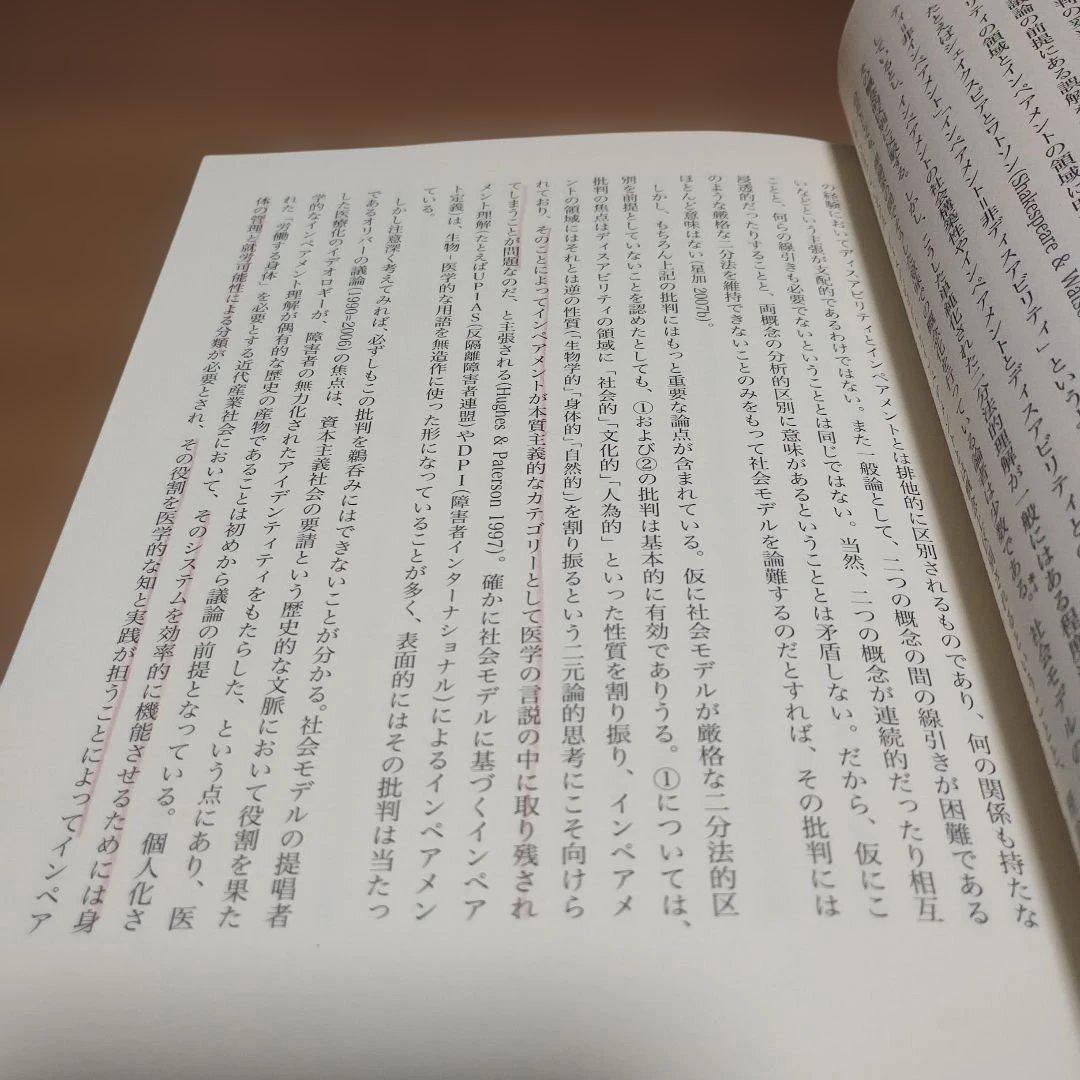 批判の
議論の前提にある誤解
リティの領域とインペアメントの領域に
たとえばシェイクスピアとワトソン(Shakespeare & Wats
ティ＝非インペアメント」「インペアメント＝非ディスアビリティ」という
の経験においてディスアビリティとインペアメントとは排他的に区別されるものであり、何の関係も持たな
いなどという主張が支配的であるわけではない。また一般論として、二つの概念の間の線引きが困難である
ことと、何らの線引きも必要でないということとは同じではない。当然、二つの概念が連続的だったり相互
浸透的だったりすることと、両概念の分析的区別に意味があるということとは矛盾しない。だから、仮にこ
のような厳格な二分法を維持できないことのみをもって社会モデルを論難するのだとすれば、その批判には
ほとんど意味はない(星加 2007b)。
しかし、もちろん上記の批判にはもっと重要な論点が含まれている。仮に社会モデルが厳格な二分法的区
別を前提としていないことを認めたとしても、①および②の批判は基本的に有効でありうる。①については、
批判の焦点はディスアビリティの領域に「社会的」「文化的」「人為的」といった性質を割り振り、インペアメ
ントの領域にはそれとは逆の性質(「生物学的」「身体的」「自然的」)を割り振るという二元論的思考にこそ向けら
れており、そのことによってインペアメントが本質主義的なカテゴリーとして医学の言説の中に取り残され
てしまうことが問題なのだ、と主張される(Hughes & Paterson 1997)。確かに社会モデルに基づくインペア
メント理解(たとえばUPIAS(反隔離障害者連盟)やDPI(障害者インターナショナル)によるインペアメン
ト定義)は、生物＝医学的な用語を無造作に使った形になっていることが多く、表面的にはその批判は当たっ
ている。
しかし注意深く考えてみれば、必ずしもこの批判を鵜呑みにはできないことが分かる。社会モデルの提唱者
であるオリバーの議論(1990=2006)の焦点は、資本主義社会の要請という歴史的な文脈において役割を果た
した医療化のイデオロギーが、障害者の無力化されたアイデンティティをもたらした、という点にあり、医
学的なインペアメント理解が偶有的な歴史の産物であることは初めから議論の前提となっている。個人化さ
れた「労働する身体」を必要とする近代産業社会において、そのシステムを効率的に機能させるためには身
体の管理と就労可能性による分類が必要とされ、その役割を医学的な知と実践が担うことによってインペア